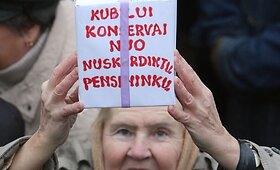 KUBILIUI
KONSERVAI
NUO
NUSKURDINTŲ
PENSININKŲ